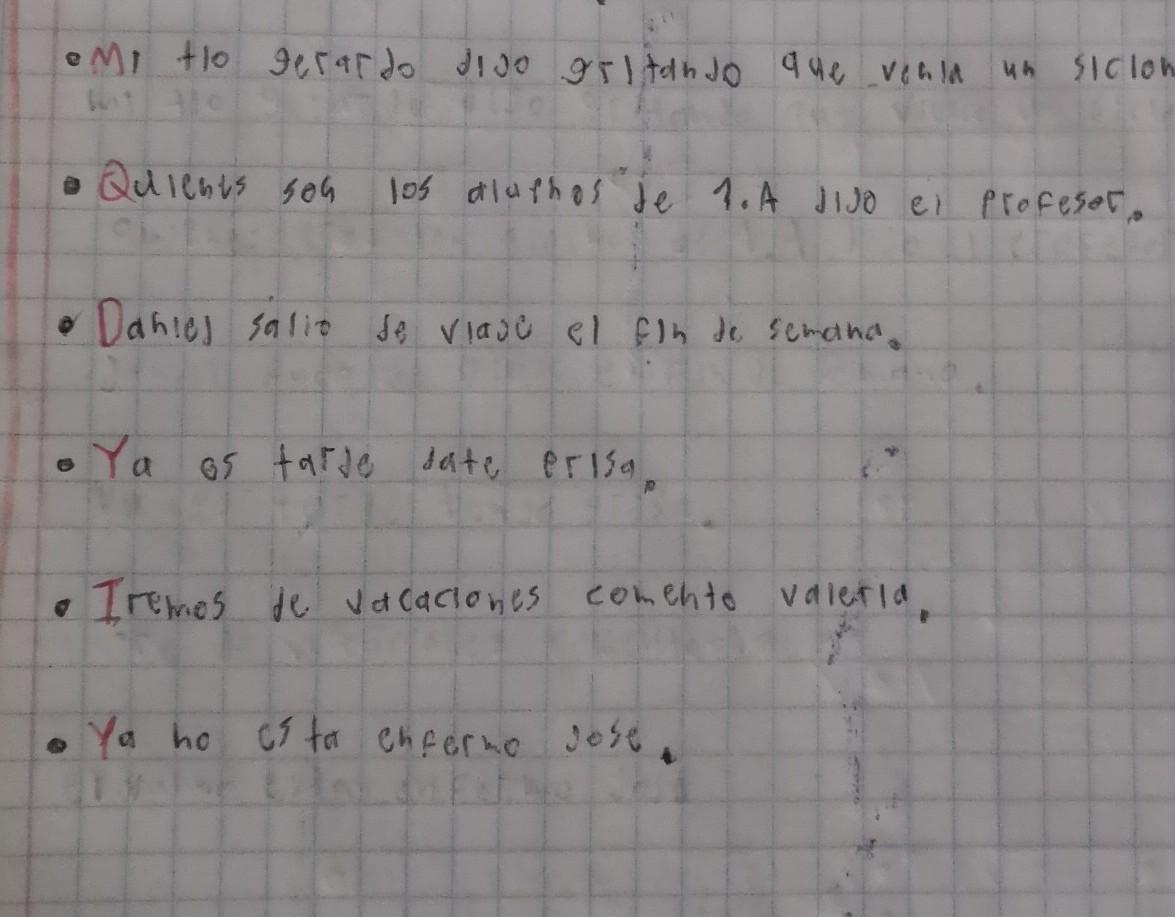 • Mi tio gerardo dijo gritando que venia un siclon
• Quienes son los alumnos de 1.A dijo el profesor.
• Daniel salio de viaje el fin de semana.
• Ya es tarde date prisa.
• Iremos de vacaciones comento valeria.
• Ya no esta enfermo jose.